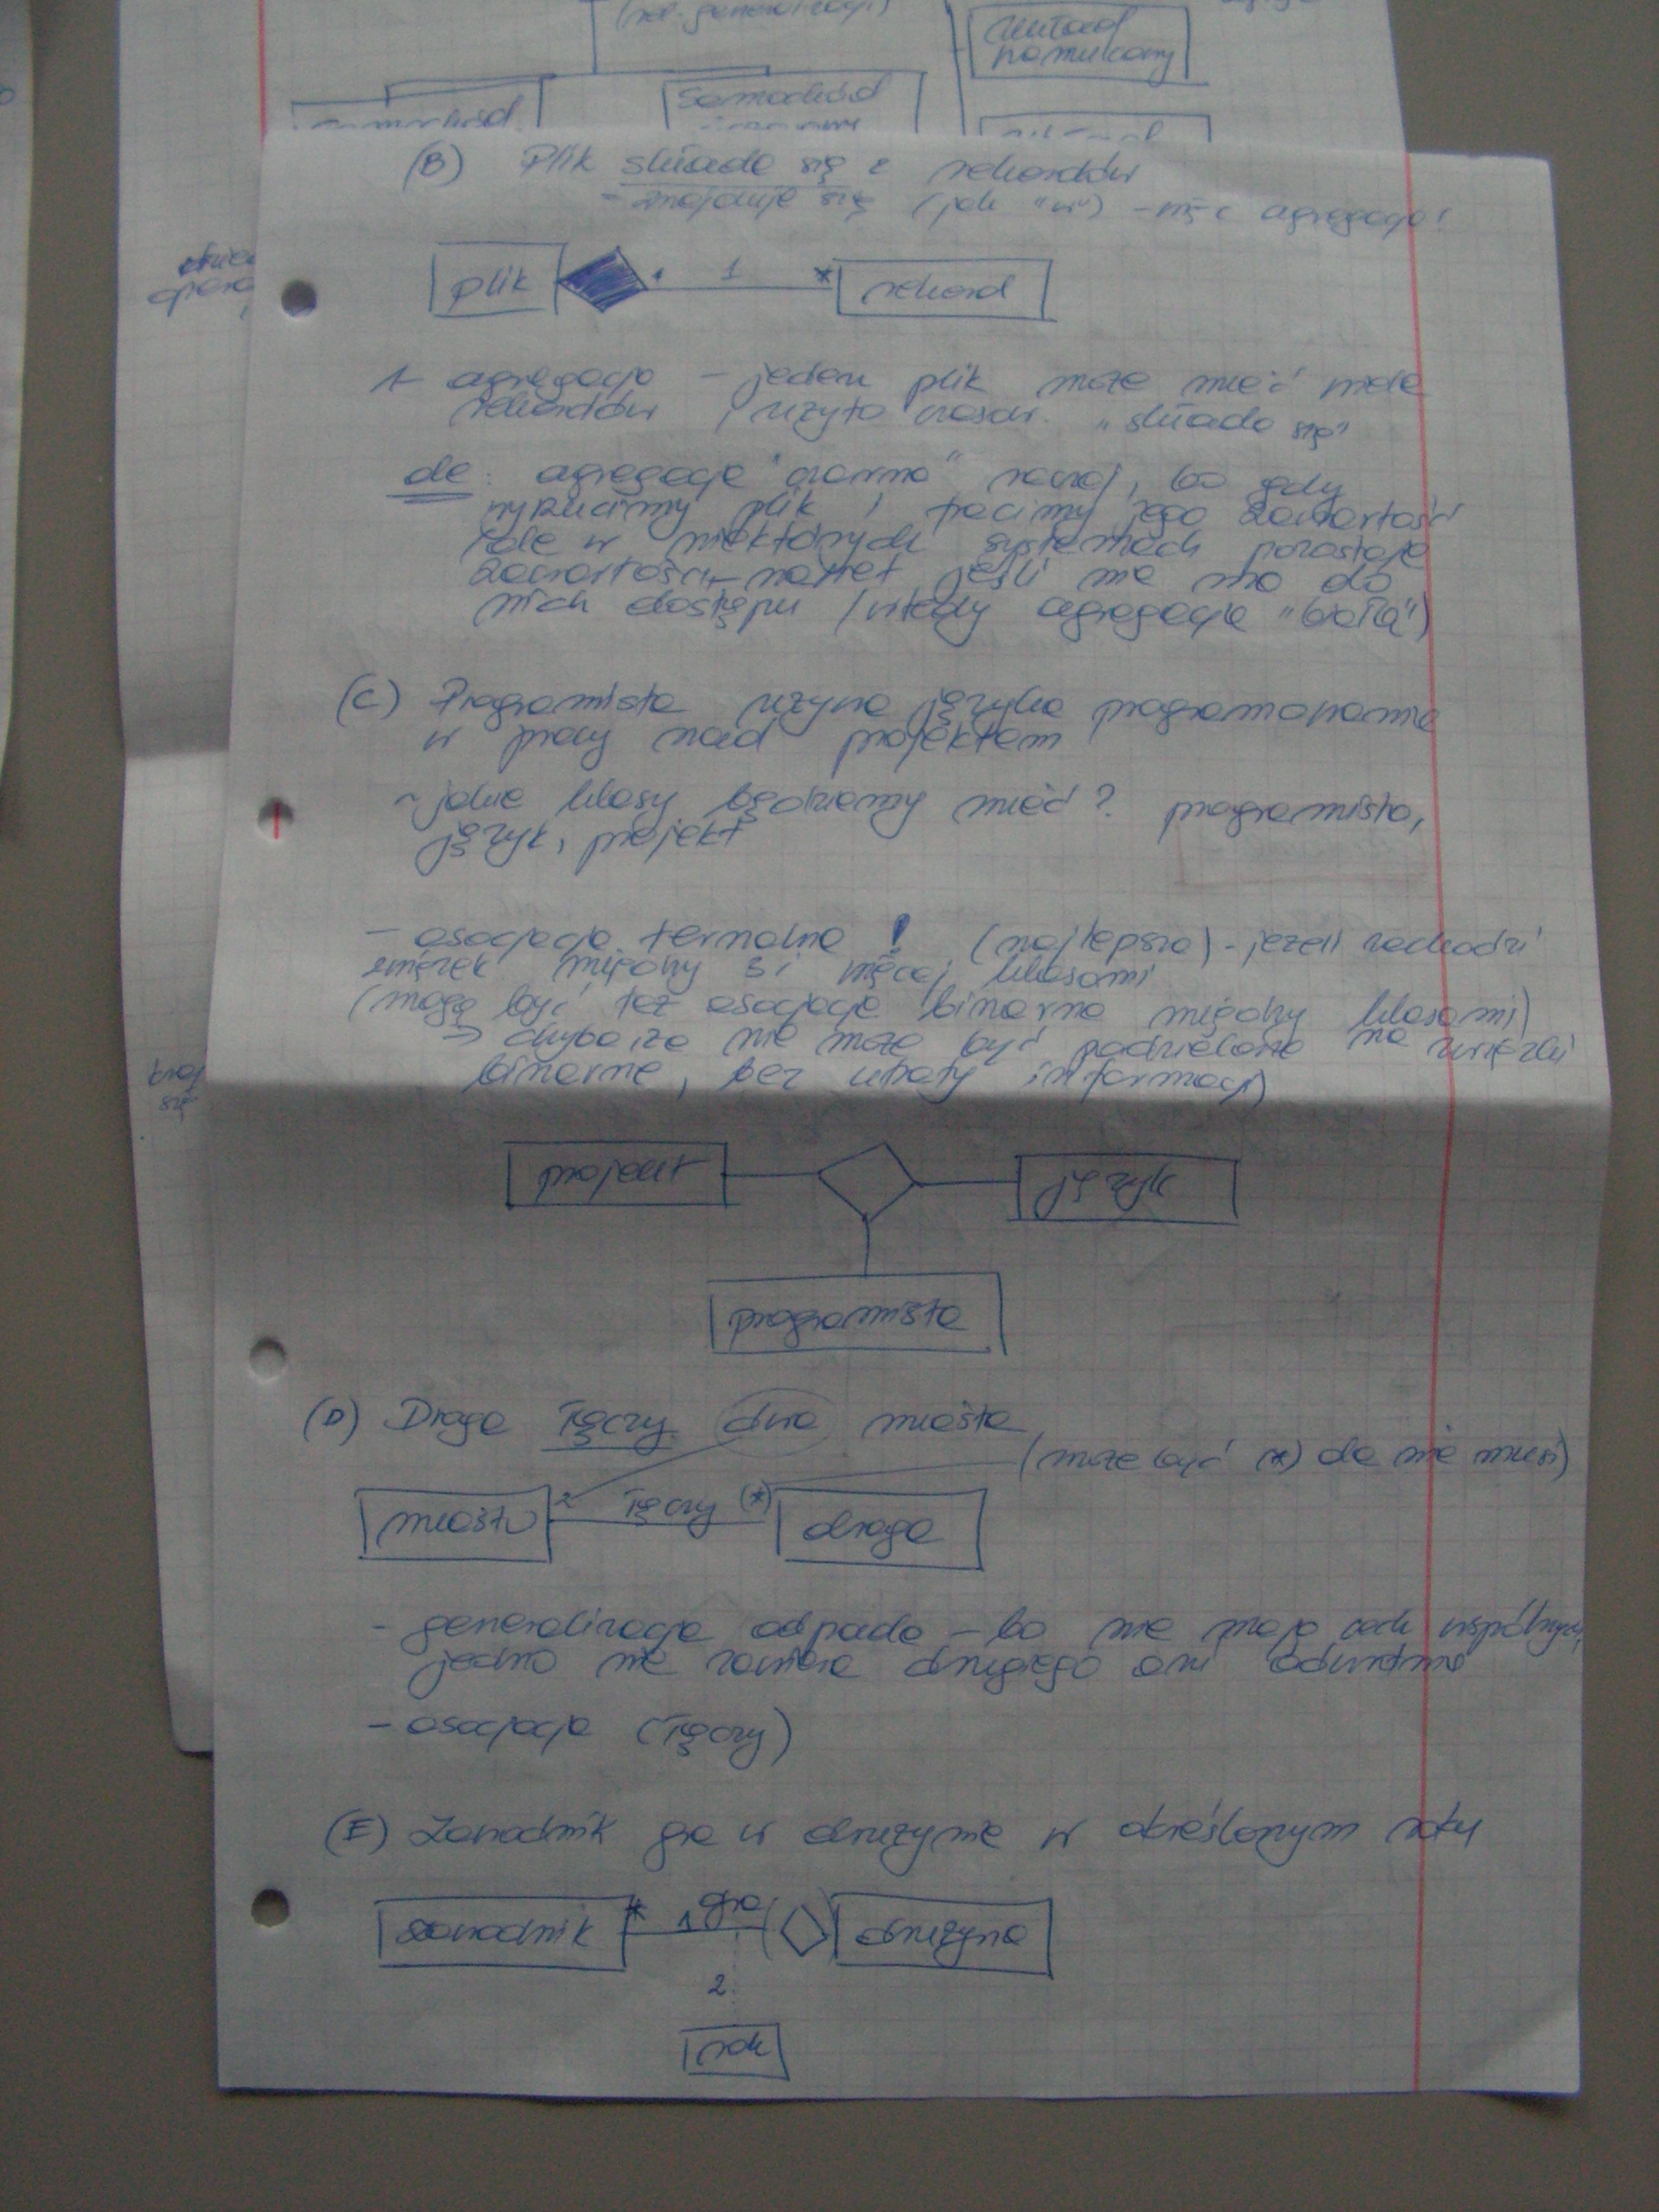 (rel. generalizacji)
układ
hamulcowy
Samochód
(B) Plik składa się z rekordów
- znajduje się (jak "w") - więc agregacja!
plik 1 * rekord
1- agregacja - jeden plik może mieć wiele
rekordów, użyto czasow. "składa się"
ale: agregacja "czarna" raczej, bo gdy
wyrzucimy plik, tracimy jego zawartość
(ale w niektórych systemach pozostaje
zawartość, nawet jeśli nie ma do
nich dostępu (wtedy agregacja "biała")
(C) Programista używa języka programowania
w pracy nad projektem
~ jakie klasy będziemy mieć? programista,
język, projekt
- asocjacja ternalna! (najlepsza) - jeżeli zachodzi
związek między 3 i więcej klasami
(mogą być też asocjacje binarne między klasami)
⇒ chyba że nie może być podzielone na związki
binarne, bez utraty informacji)
projekt język
programista
(D) Droga łączy dwa miasta
(może być (*) ale nie musi)
miasto 2 łączy (*) droga
- generalizacja odpada - bo nie mają cech wspólnych,
jedno nie zawiera drugiego ani odwrotnie
- asocjacja (łączy)
(E) Zawodnik gra w drużynie w określonym roku
zawodnik * 1 gra drużyna
2.
rok